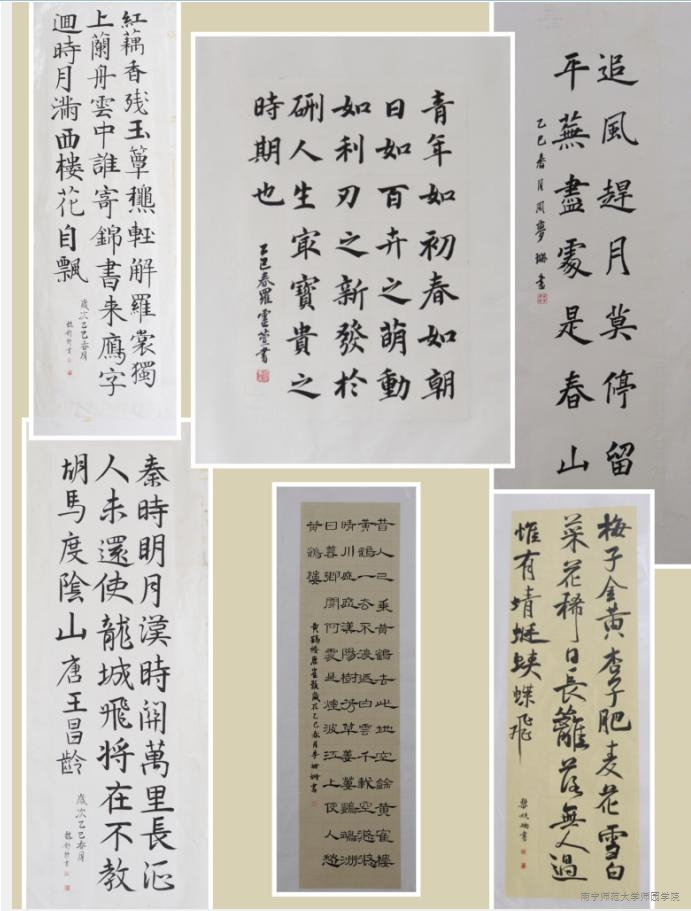 紅藕香残玉簟龝輕解羅裳獨
上蘭舟雲中誰寄錦書来鴈字
迴時月满西楼花自飄
歲次乙巳春月
青年如初春如朝
日如百卉之萌動
如利刃之新發於
硎人生冣寶貴之
時期也
乙巳春羅雲萱書
追風趕月莫停留
平蕪盡處是春山
乙巳春月周夢琳書
秦時明月漢時関萬里長征
人未還使龍城飛将在不教
胡馬度陰山唐王昌龄
歲次乙巳春月
昔人已乘黄鶴去此地空餘黄鶴樓
黄鶴一去不復返白雲千載空悠悠
晴川歷歷漢陽樹芳草萋萋鸚鵡洲
日暮鄉關何處是煙波江上使人愁
黄鶴樓
黄鶴樓唐崔顥歲在乙巳春月李姗姗書
梅子金黄杏子肥麦花雪白
菜花稀日長籬落無人過
惟有蜻蜓蛱蝶飛
南宁师范大学师园学院